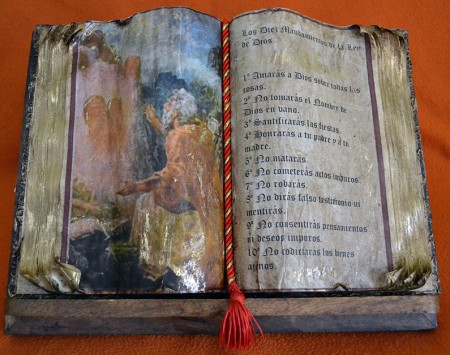 Los Diez Mandamientos de la Ley
de Dios
1º Amarás a Dios sobre todas las
cosas.
2º No tomarás el Nombre de
Dios en vano.
3º Santificarás las fiestas.
4º Honrarás a tu padre y a tu
madre.
5º No matarás.
6º No cometerás actos impuros.
7º No robarás.
8º No dirás falso testimonio ni
mentirás.
9º No consentirás pensamientos
ni deseos impuros.
10º No codiciarás los bienes
ajenos.